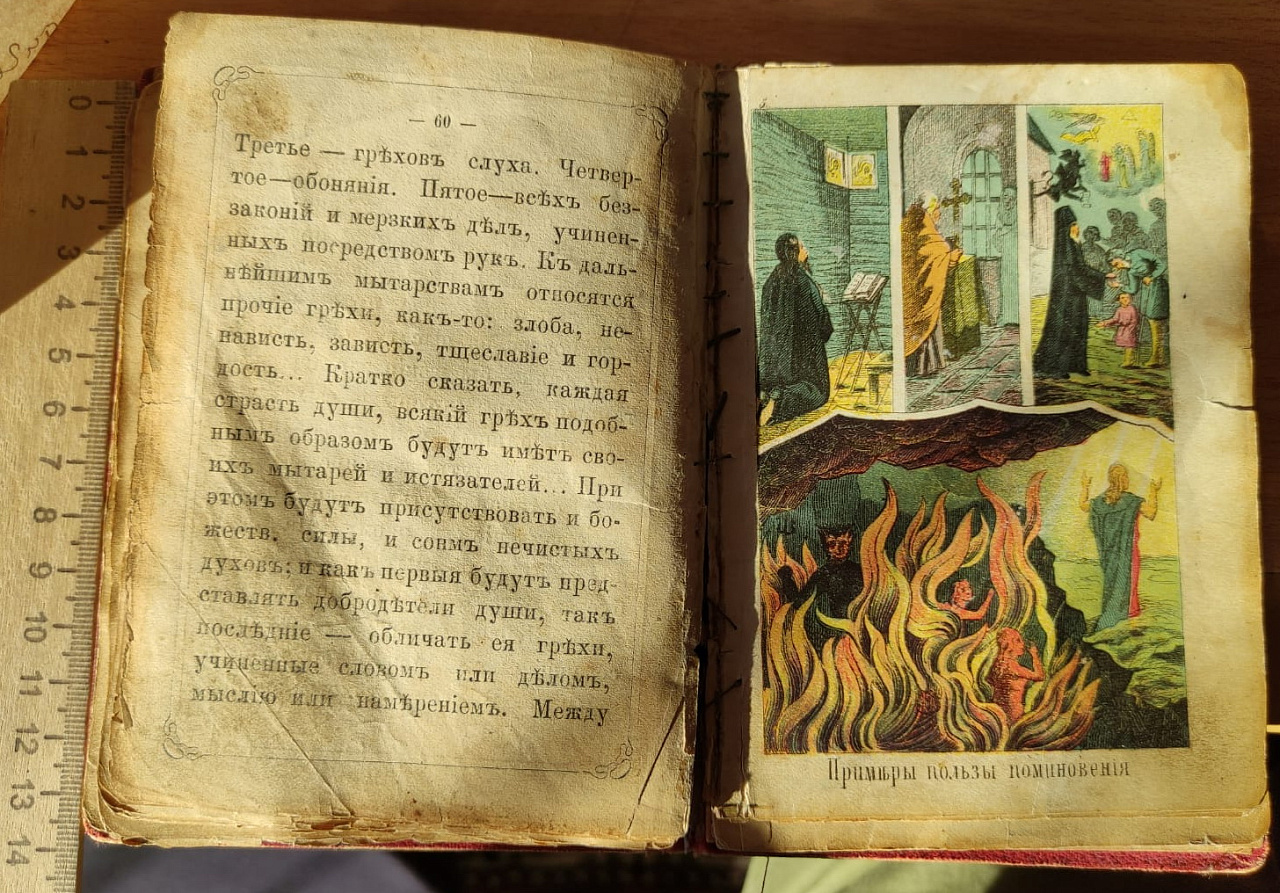 — 60 —
Третье — грѣховъ слуха. Четвер-
тое—обонянія. Пятое—всѣхъ без-
законій и мерзкихъ дѣлъ, учинен-
ныхъ посредствомъ рук. Къ даль-
нѣйшимъ мытарствамъ относятся
прочіе грѣхи, какъ-то: злоба, не-
нависть, зависть, тщеславіе и гор-
дость... Кратко сказать, каждая
страсть души, всякій грѣхъ подоб-
нымъ образомъ будутъ имѣть сво-
ихъ мытарей и истязателей... При
этомъ будутъ присутствовать и бо-
жеств. силы, и сонмъ нечистыхъ
духовъ; и какъ первыя будутъ пред-
ставлять добродѣтели души, такъ
послѣдніе — обличать ея грѣхи,
учиненные словомъ или дѣломъ,
мыслію или намѣреніемъ. Между
Примѣры пользы поминовенія
0
1
2
3
4
5
6
7
8
9
10
11
12
13
14